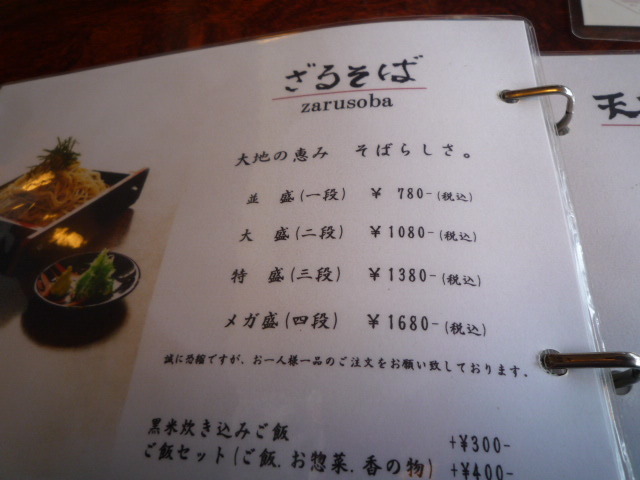 ざるそば
zarusoba
大地の恵み そばらしさ。
並 盛(一段) ¥ 780-(税込)
大 盛(二段) ¥1080-(税込)
特 盛(三段) ¥1380-(税込)
メガ盛(四段) ¥1680-(税込)
誠に恐縮ですが、お一人様一品のご注文をお願い致しております。
黒米炊き込みご飯 +¥300-
ご飯セット(ご飯.お惣菜.香の物) +¥400-
天